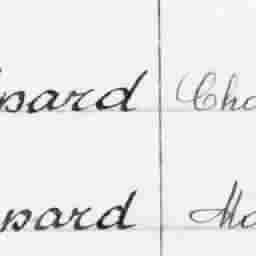 pard Cha
pard Ma